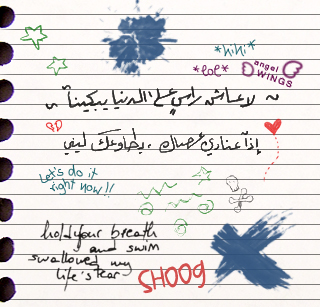 *hihi*
*lol*
angel
WINGS
~ لا عاش راسي على الدنيا يبكيناً ~
إذا عنادي
Let's do it
right now!!
hold your breath
and swim
swallowed my
life's tear
SHOOg